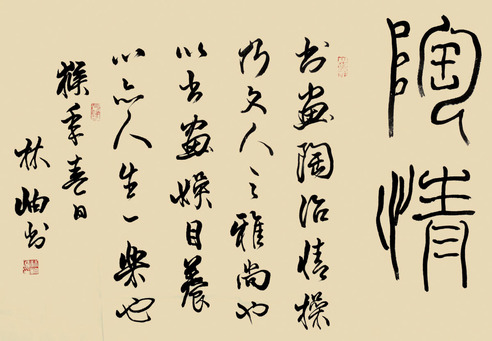 陶情
书画陶冶情操
乃文人之雅尚也
以书画娱目养
心亦人生一乐也
猴年春日
林岫书